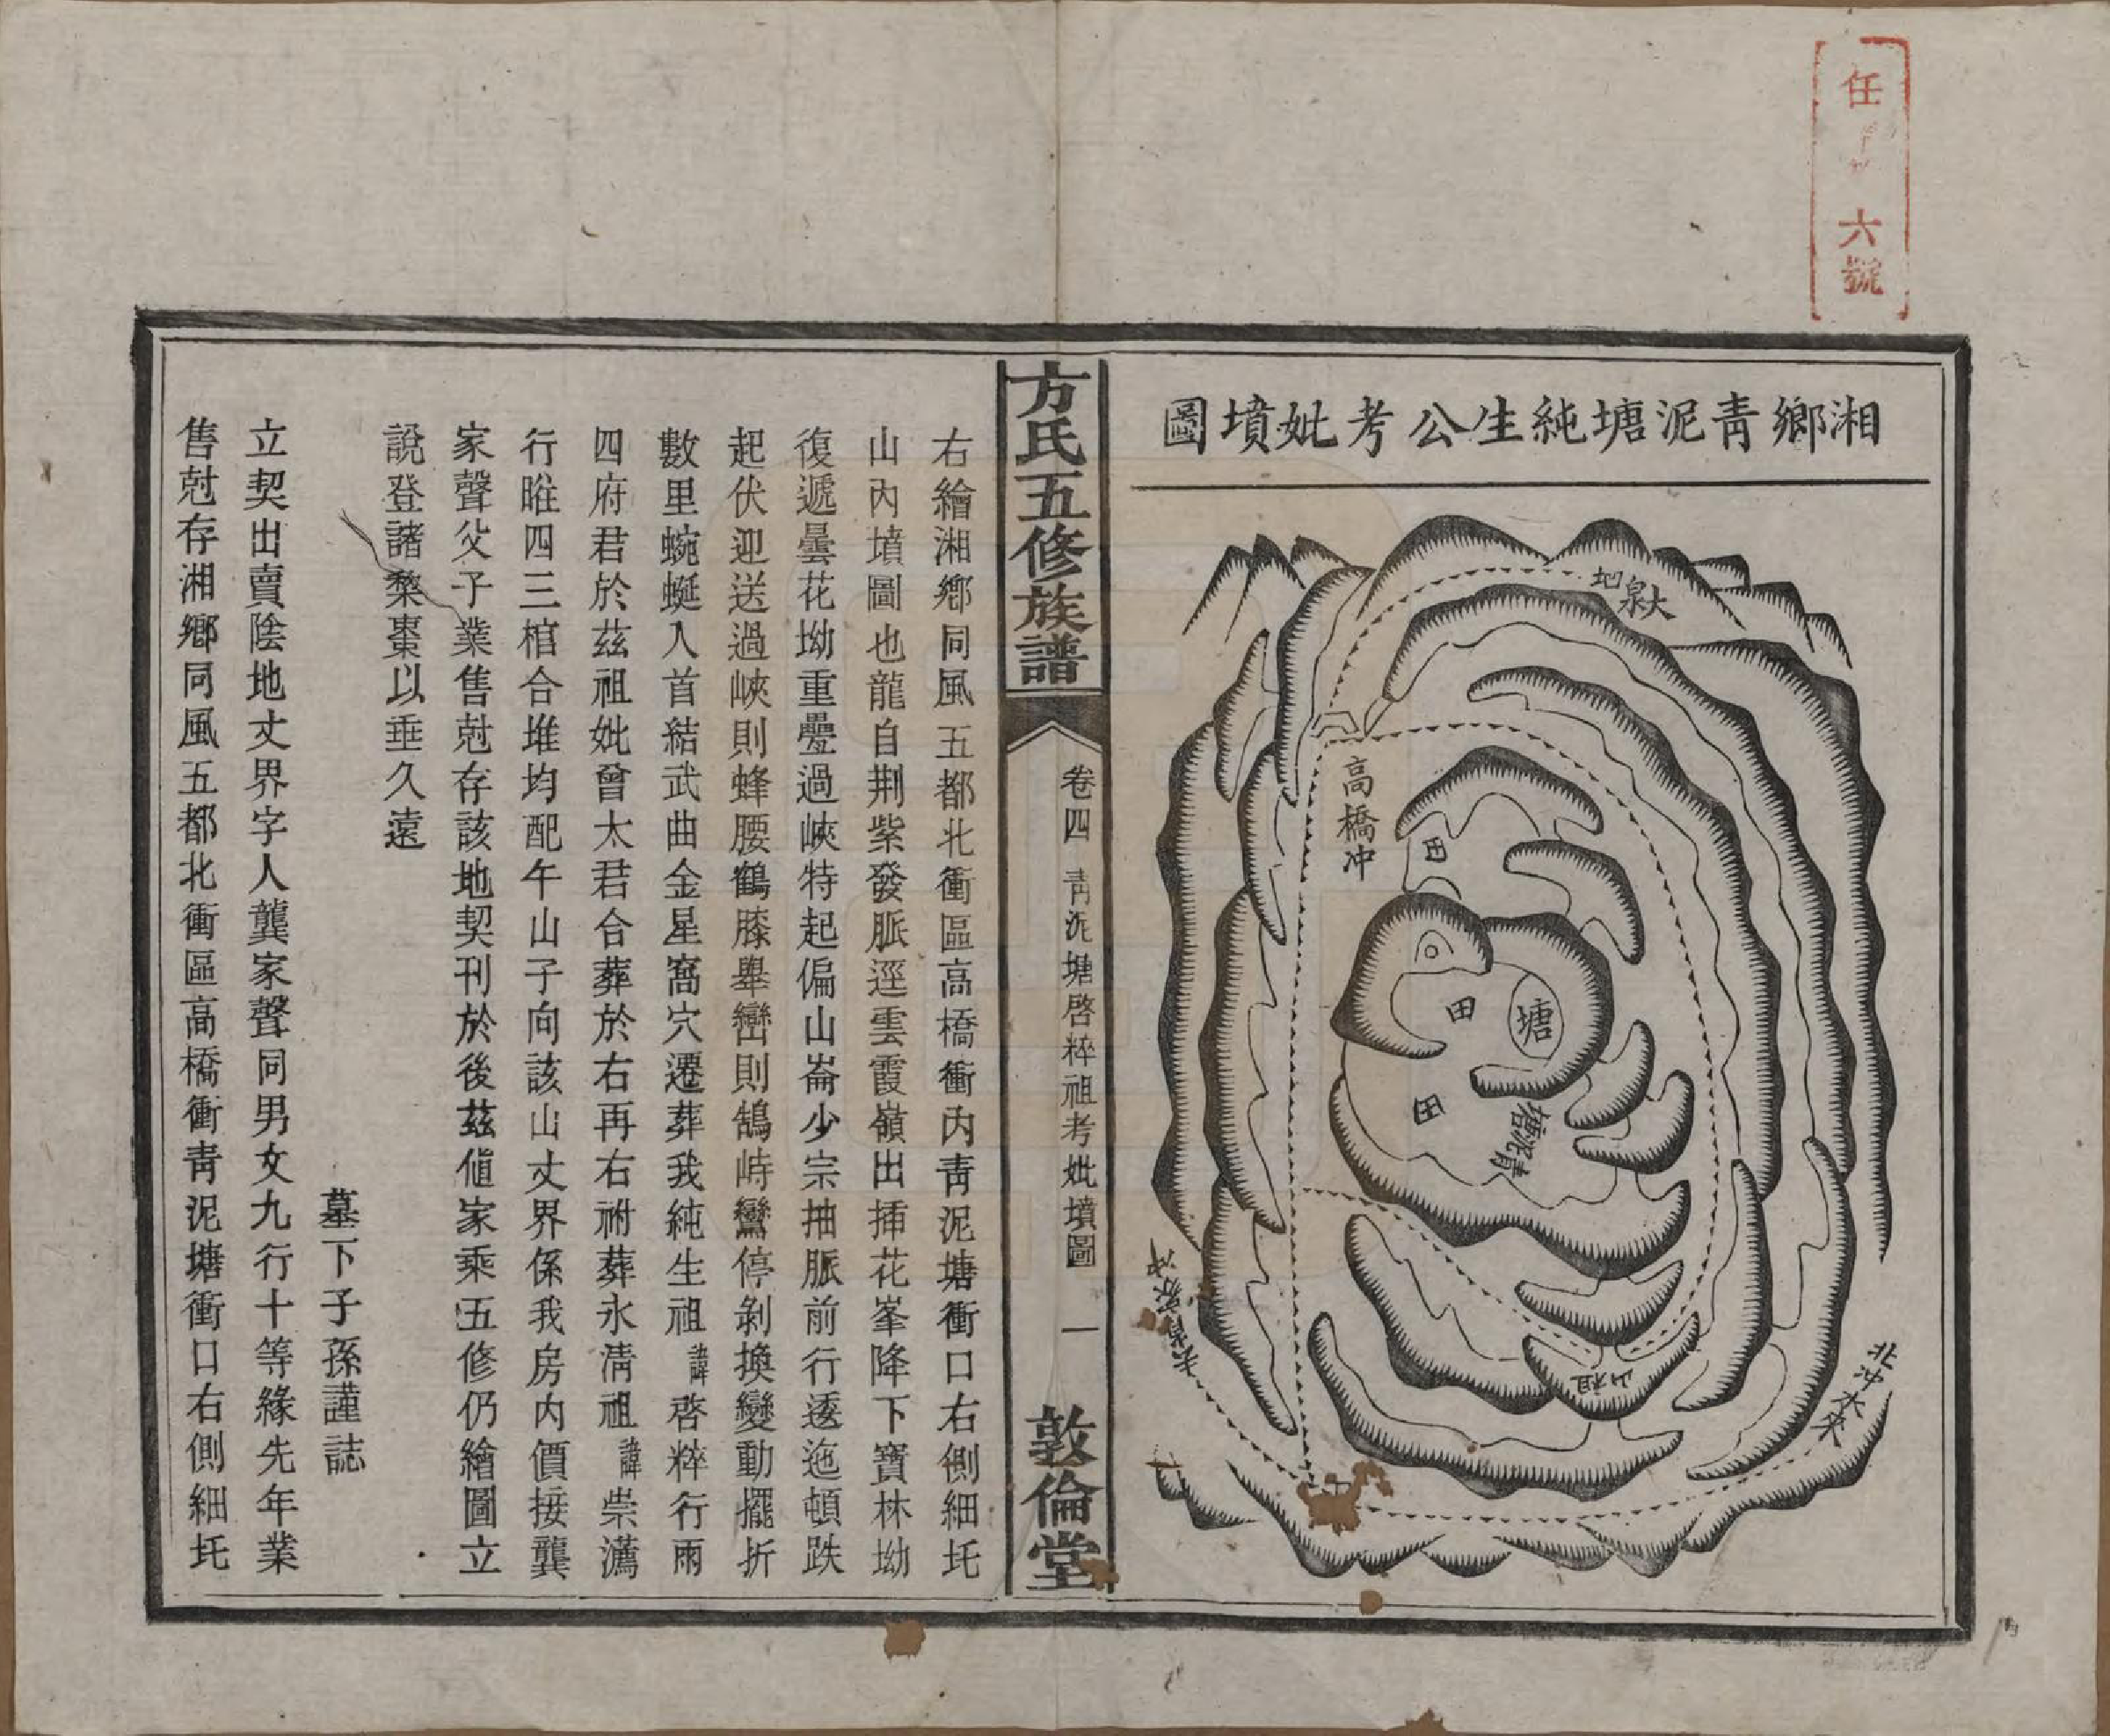 任
六號
湘鄉靑泥塘純生公考妣墳圖
大泉
地
高橋冲
田
田
塘
田
靑泥塘
祖山
北冲大夫
方氏五修族譜
卷四 靑泥塘啓粹祖考妣墳圖 一
敦倫堂
右繪湘鄉同風五都北衝區高橋衝內靑泥塘衝口右側細圫
山內墳圖也龍自荆紫發脈逕雲霞嶺出揷花峯降下寶林坳
復遞曇花坳重疊過峽特起偏山崙少宗抽脈前行逶迤頓跌
起伏迎送過峽則蜂腰鶴膝舉巒則鵠峙鸞停剝換變動擺折
數里蜿蜒入首結武曲金星窩穴遷葬我純生祖諱啓粹行兩
四府君於茲祖妣曾太君合葬於右再右祔葬永淸祖諱崇灊
行暀四三棺合堆均配午山子向該山丈界係我房內價接龔
家聲父子業售尅存該地契刊於後茲値家乘五修仍繪圖立
說登諸棃棗以垂久遠
墓下子孫謹誌
立契出賣陰地丈界字人龔家聲同男女九行十等緣先年業
售尅存湘鄉同風五都北衝區高橋衝靑泥塘衝口右側細圫